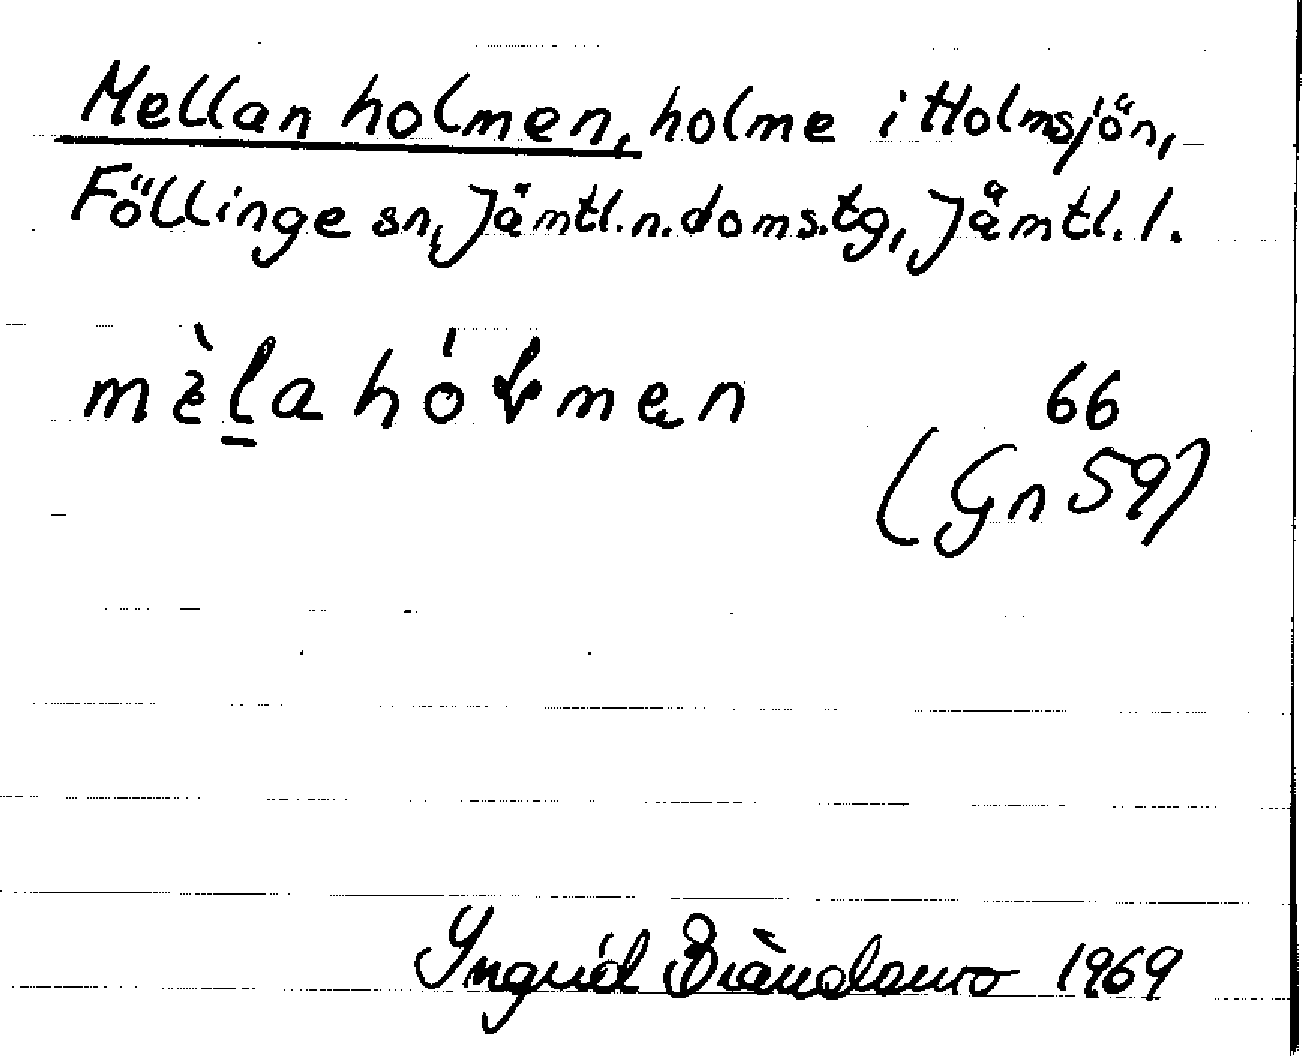 Mellanholmen, holme i Holmsjön,
Föllinge sn, Jämtl.n.doms.tg, Jämtl. l.
mèlahólmen 66
(Gn 59)
Ingrid 1969